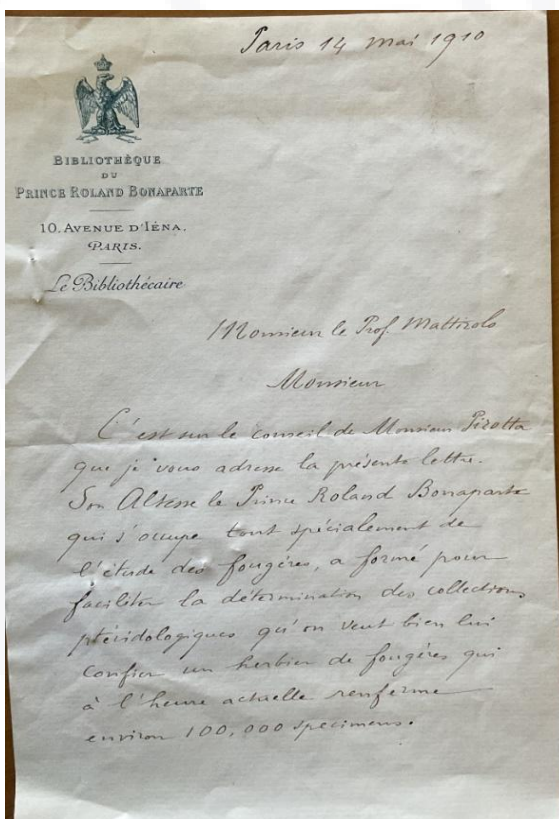 Paris 14 mai 1910
BIBLIOTHÈQUE
DU
PRINCE ROLAND BONAPARTE
10, AVENUE D'IÉNA.
PARIS.
Le Bibliothécaire
Monsieur le Prof. Mattirolo
Monsieur
C'est sur le conseil de Monsieur Pirotta
que je vous adresse la présente lettre.
Son Altesse le Prince Roland Bonaparte
qui s'occupe tout spécialement de
l'étude des fougères, a formé pour
faciliter la détermination des collections
ptéridologiques qu'on veut bien lui
confier un herbier de fougères qui
à l'heure actuelle renferme
environ 100,000 specimens.